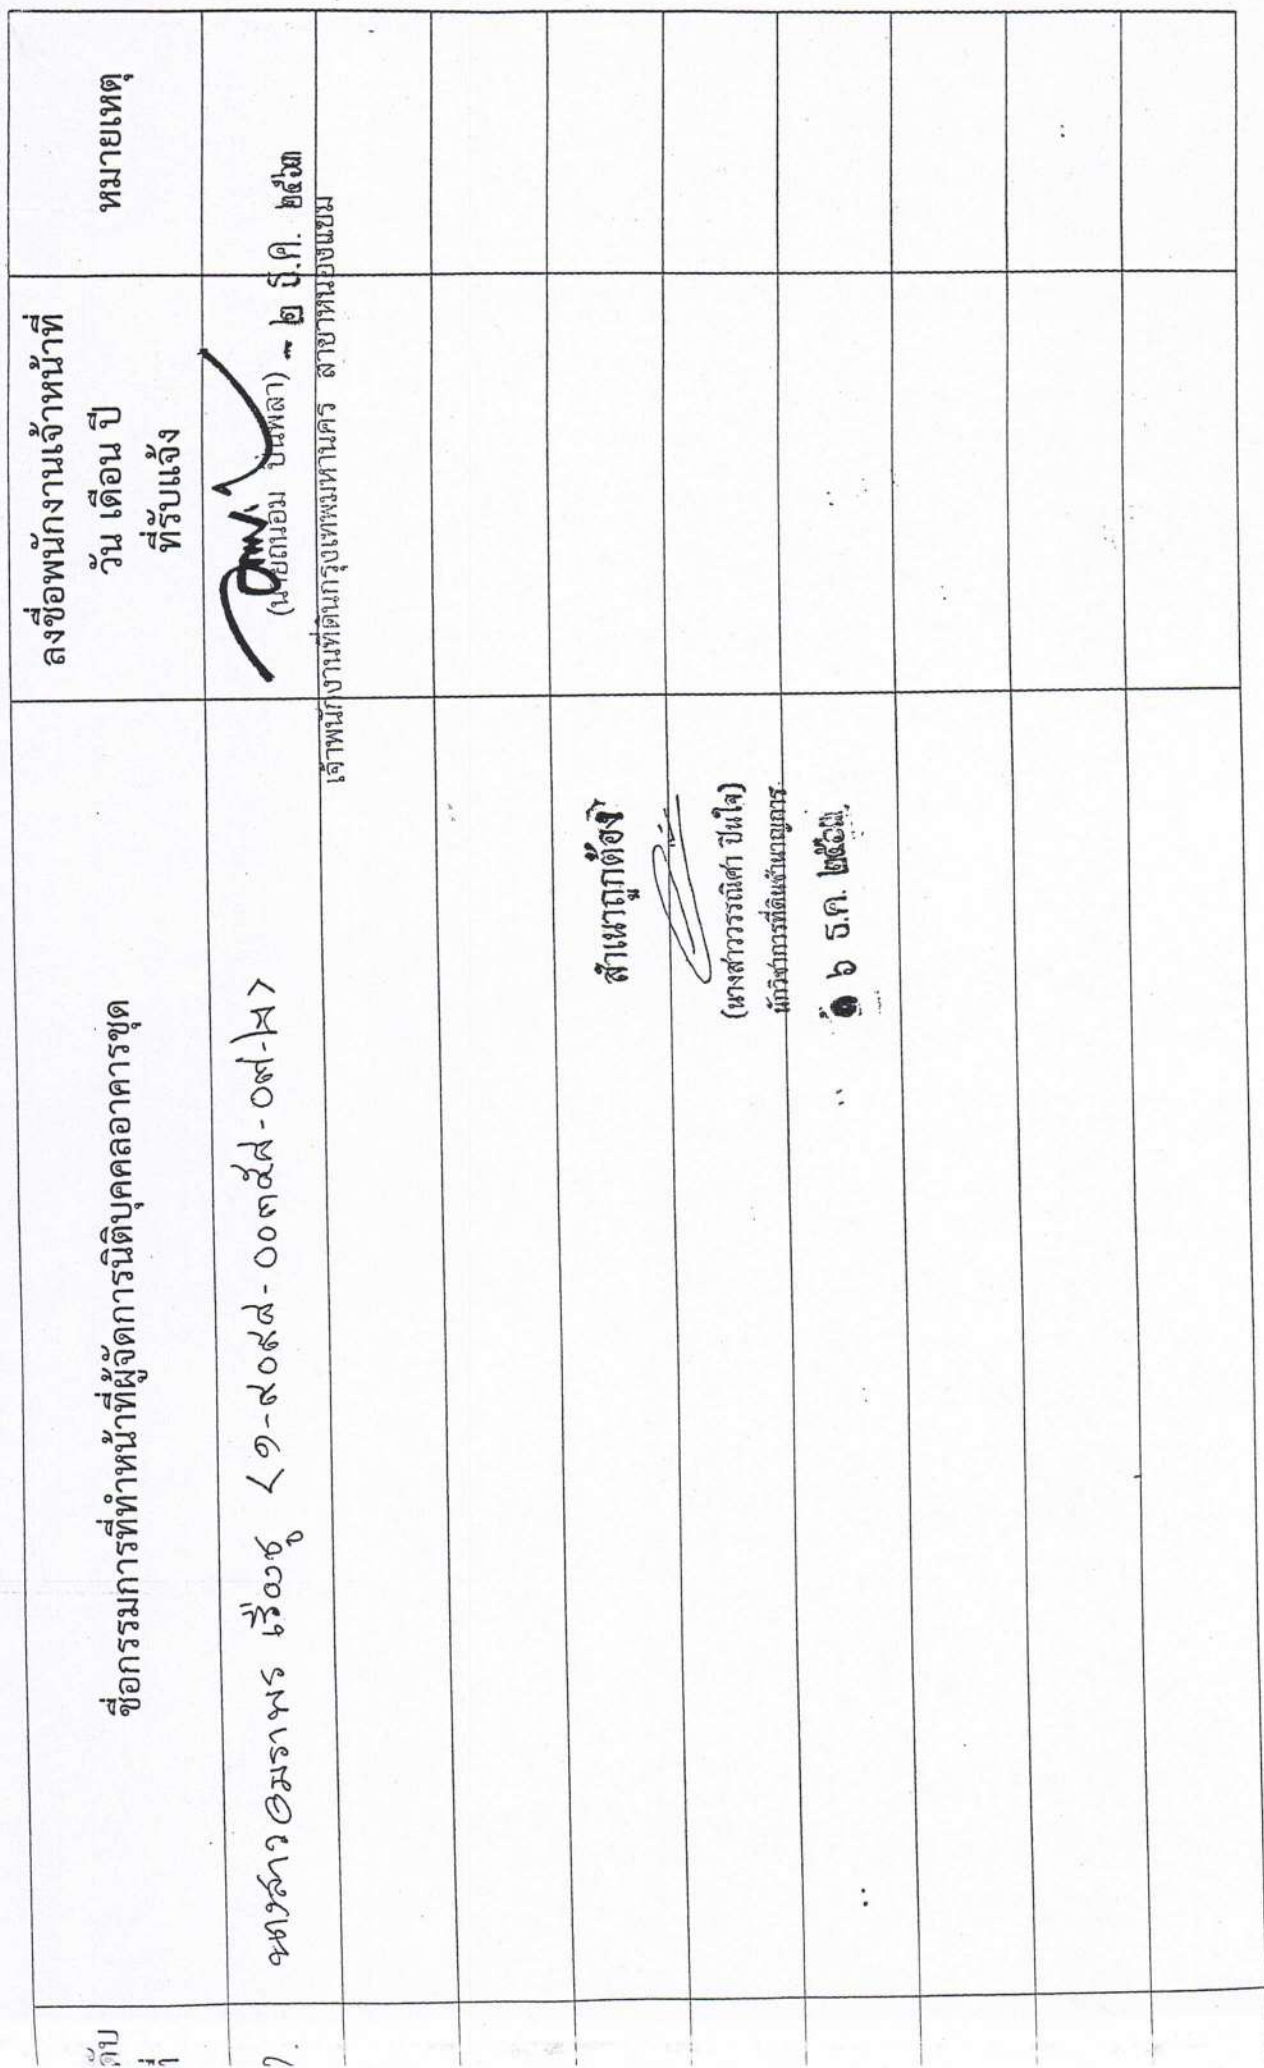 ดับ
ที่
ชื่อกรรมการที่ทำหน้าที่ผู้จัดการนิติบุคคลอาคารชุด
ลงชื่อพนักงานเจ้าหน้าที่
วัน เดือน ปี
ที่รับแจ้ง
หมายเหตุ
๑.
นางสาวอมราพร เรืองชู
(นายถนอม ปุ่นพลา) - ๒ ธ.ค.
เจ้าพนักงานที่ดินกรุงเทพมหานคร สาขาหนองแขม
สำเนาถูกต้อง
(นางสาววรรณิศา ปินใจ)
นักวิชาการที่ดินชำนาญการ
๑ ๖ ธ.ค.